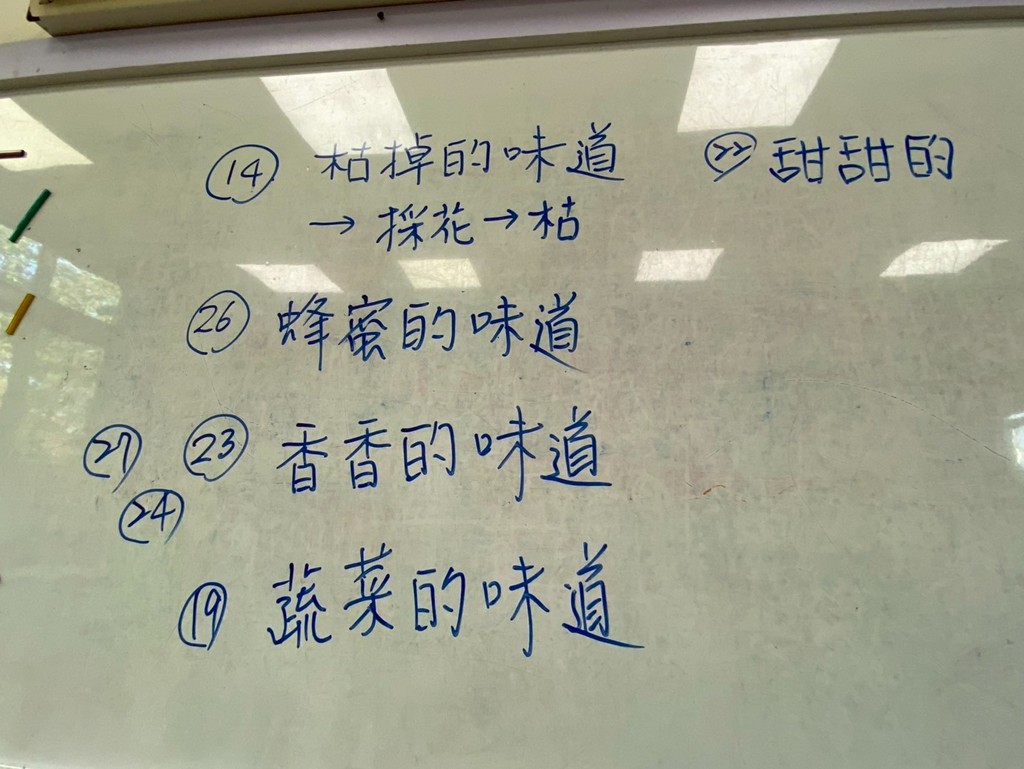 ⑭ 枯掉的味道 ㉒ 甜甜的
→ 採花 → 枯
㉖ 蜂蜜的味道
㉗ ㉓ 香香的味道
㉔
⑲ 蔬菜的味道